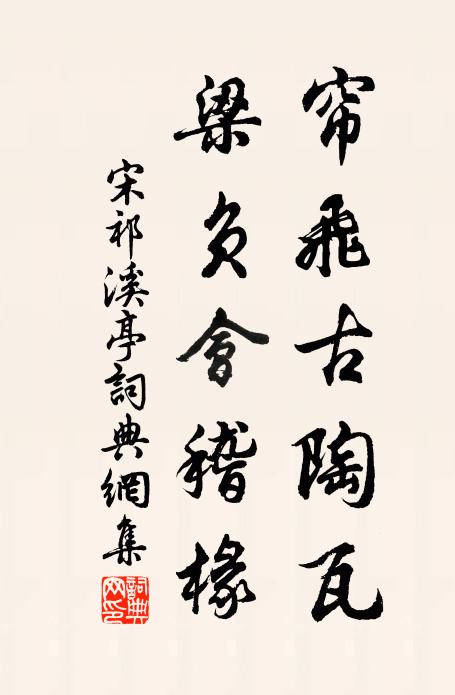 帘飛古陶瓦
梁負會稽椽
宋祁溪亭詞典網集
詞典網印